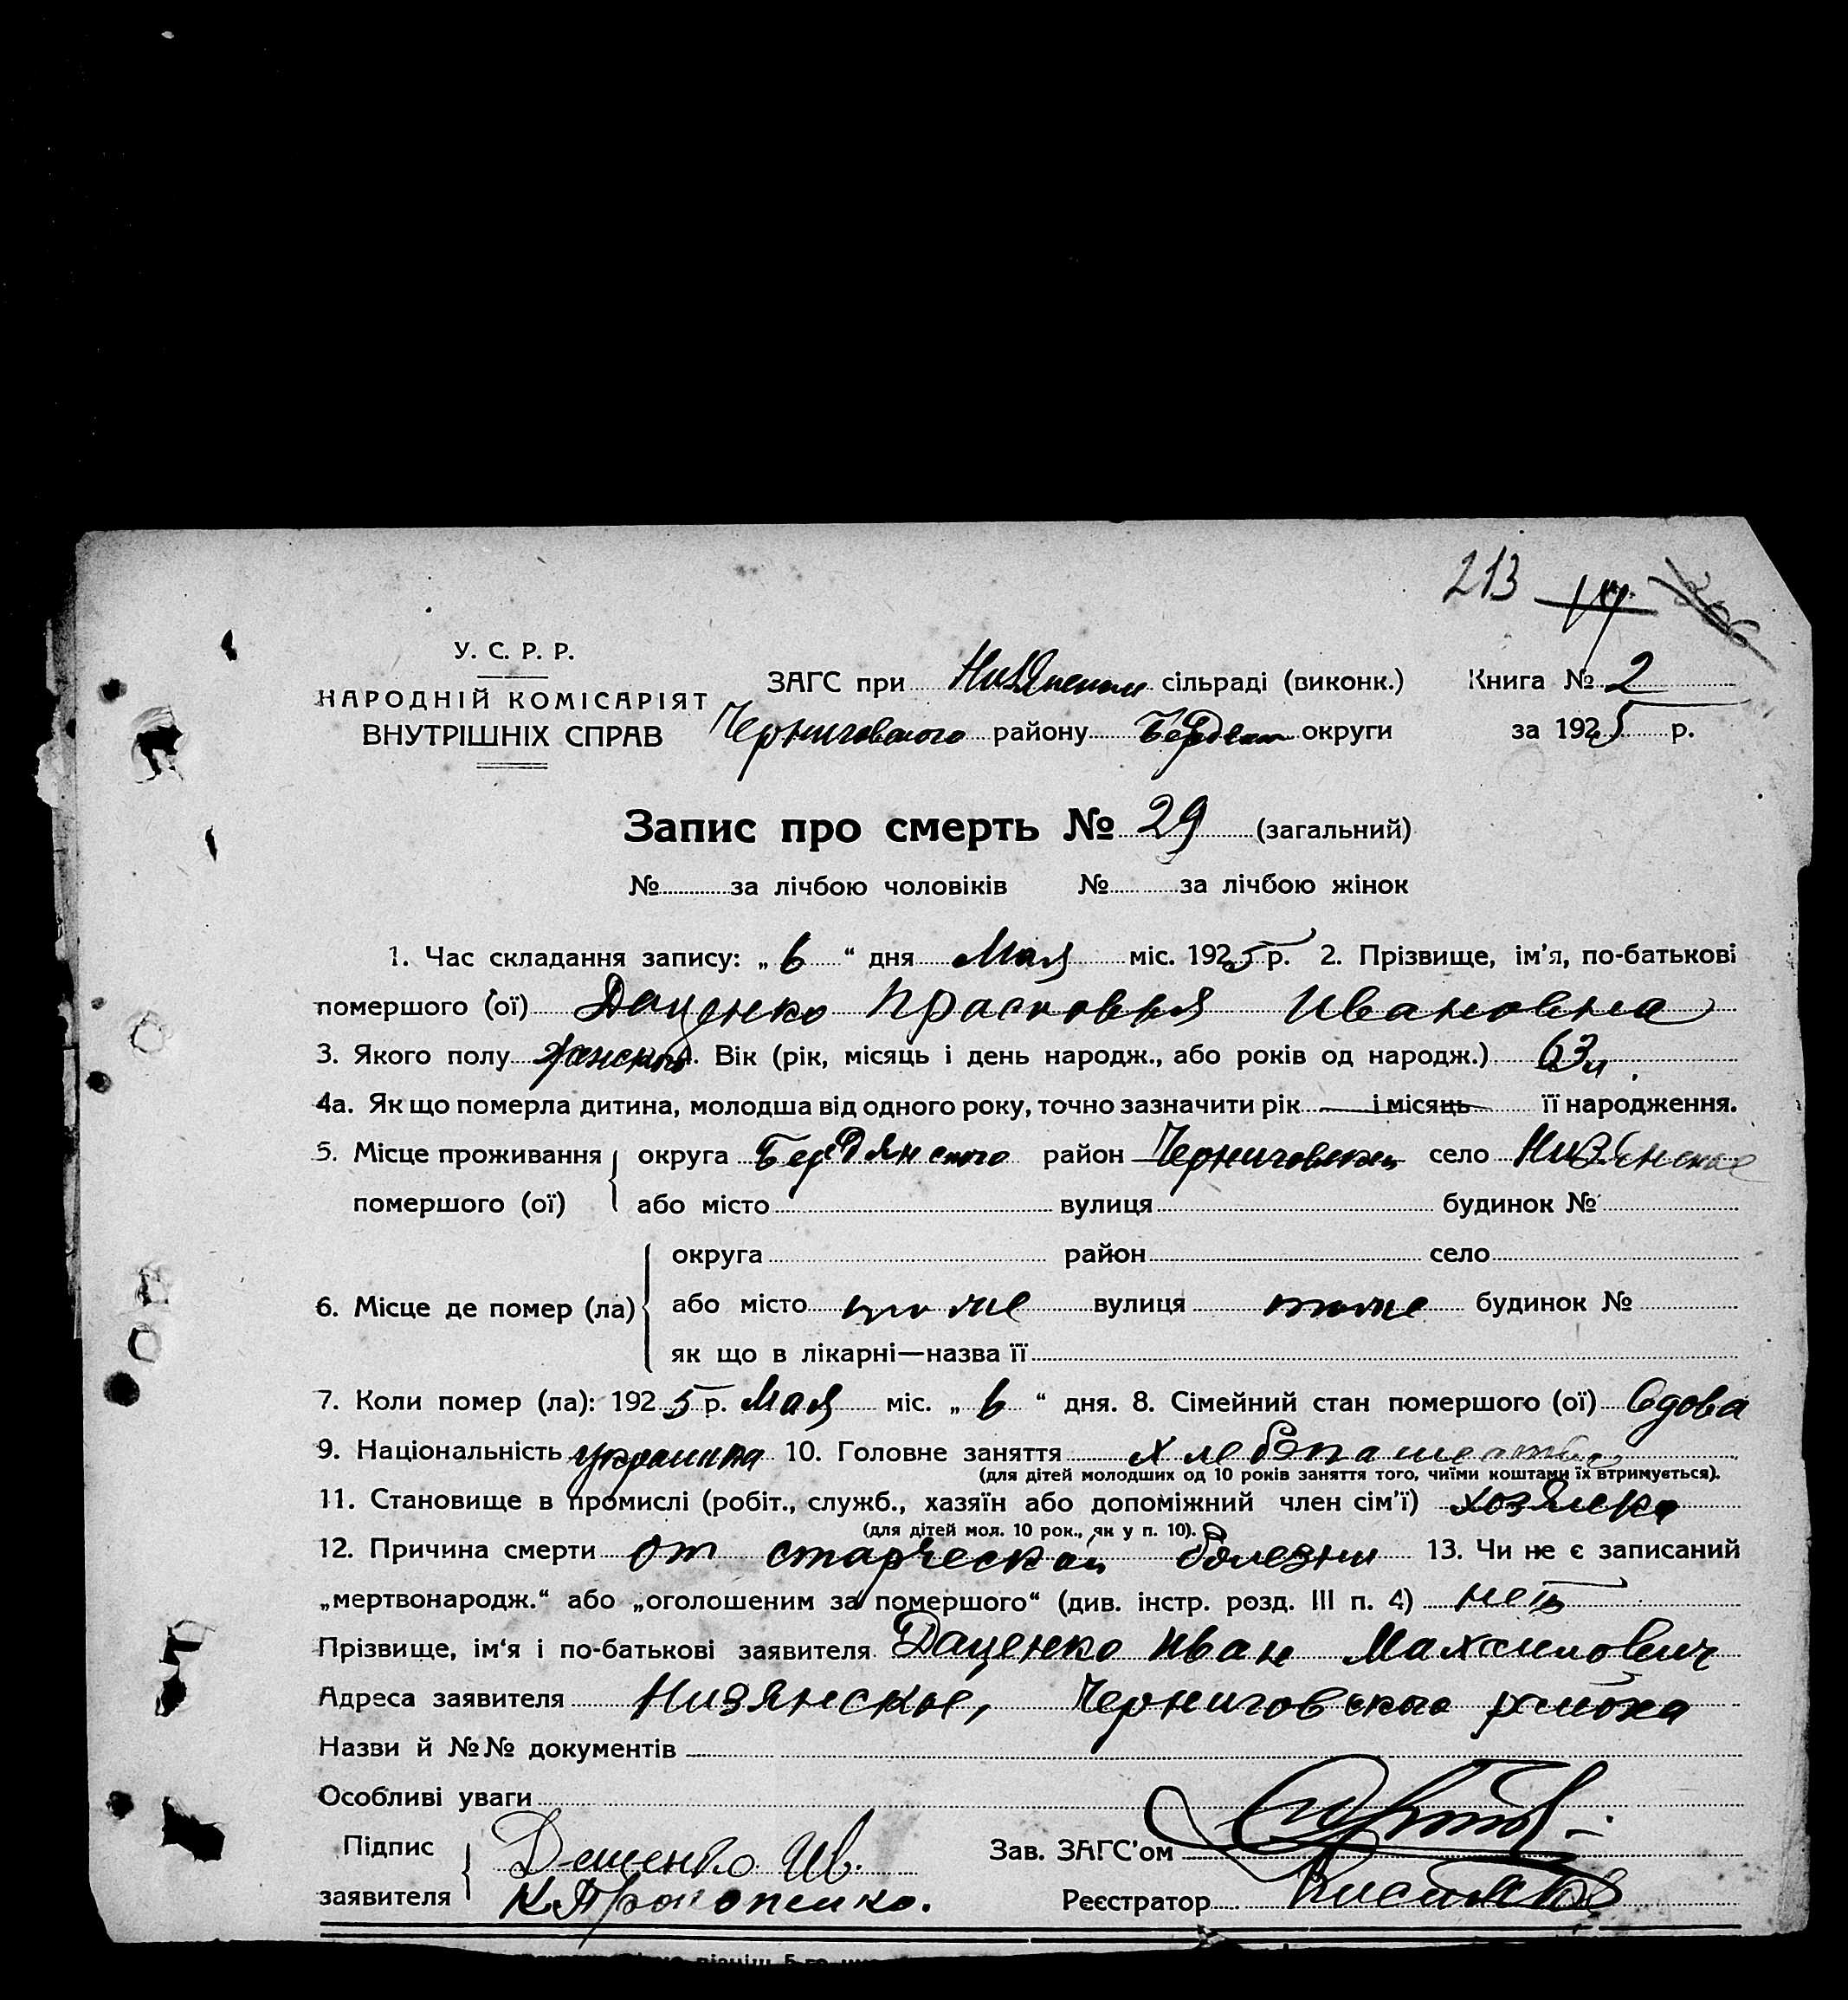 213 19 206
У. С. Р. Р.
НАРОДНІЙ КОМІСАРІЯТ
ВНУТРІШНІХ СПРАВ
ЗАГС при сільраді (виконк.) Книга № 2
Черниговского району Бердян округи за 1925 р.
Запис про смерть № 29 (загальний)
№ за лічбою чоловіків № за лічбою жінок
1. Час складання запису: „6“ дня Мая міс. 1925 р. 2. Прізвище, ім’я, по-батькові
помершого (ої) Даценко Прасковья Ивановна
3. Якого полу женской Вік (рік, місяць і день народж., або років од народж.) 63 л.
4а. Як що померла дитина, молодша від одного року, точно зазначити рік — і місяць її народження.
5. Місце проживання помершого (ої) округа Бердянского район Черниговский село Низянское
або місто вулиця будинок №
6. Місце де помер (ла) округа район село
або місто тоже вулиця тоже будинок №
як що в лікарні—назва її
7. Коли помер (ла): 1925 р. Мая міс. „6“ дня. 8. Сімейний стан помершого (ої) вдова
9. Національність украинка 10. Головне заняття хлебопашество
(для дітей молодших од 10 років заняття того, чиїми коштами їх втримується).
11. Становище в промислі (робіт., служб., хазяїн або допоміжний член сім’ї) хозяйка
(для дітей мол. 10 рок., як у п. 10).
12. Причина смерти от старческой болезни 13. Чи не є записаний
„мертвонародж.“ або „оголошеним за помершого“ (див. інстр. розд. III п. 4) нет
Прізвище, ім‘я і по-батькові заявителя Даценко Иван Махсимович
Адреса заявителя Низянское, Черниговского района
Назви й №№ документів
Особливі уваги
Підпис заявителя Даценко Ив.
К. Прокопенко.
Зав. ЗАГС’ом
Реєстратор